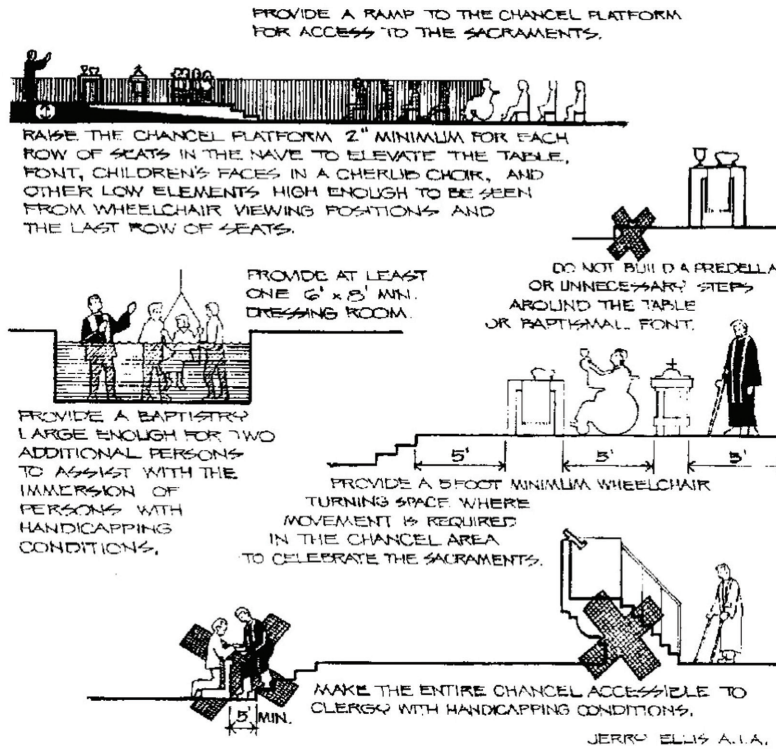 PROVIDE A RAMP TO THE CHANCEL PLATFORM
FOR ACCESS TO THE SACRAMENTS.
RAISE THE CHANCEL PLATFORM 2" MINIMUM FOR EACH
ROW OF SEATS IN THE NAVE TO ELEVATE THE TABLE,
FONT, CHILDREN'S FACES IN A CHERUB CHOIR, AND
OTHER LOW ELEMENTS HIGH ENOUGH TO BE SEEN
FROM WHEELCHAIR VIEWING POSITIONS AND
THE LAST ROW OF SEATS.
DO NOT BUILD A PREDELLA
OR UNNECESSARY STEPS
AROUND THE TABLE
OR BAPTISMAL FONT.
PROVIDE AT LEAST
ONE 6' x 8' MIN.
DRESSING ROOM.
PROVIDE A BAPTISTRY
LARGE ENOUGH FOR TWO
ADDITIONAL PERSONS
TO ASSIST WITH THE
IMMERSION OF
PERSONS WITH
HANDICAPPING
CONDITIONS.
5' 5' 5'
PROVIDE A 5 FOOT MINIMUM WHEELCHAIR
TURNING SPACE WHERE
MOVEMENT IS REQUIRED
IN THE CHANCEL AREA
TO CELEBRATE THE SACRAMENTS.
5' MIN.
MAKE THE ENTIRE CHANCEL ACCESSIBLE TO
CLERGY WITH HANDICAPPING CONDITIONS.
JERRY ELLIS A.I.A.